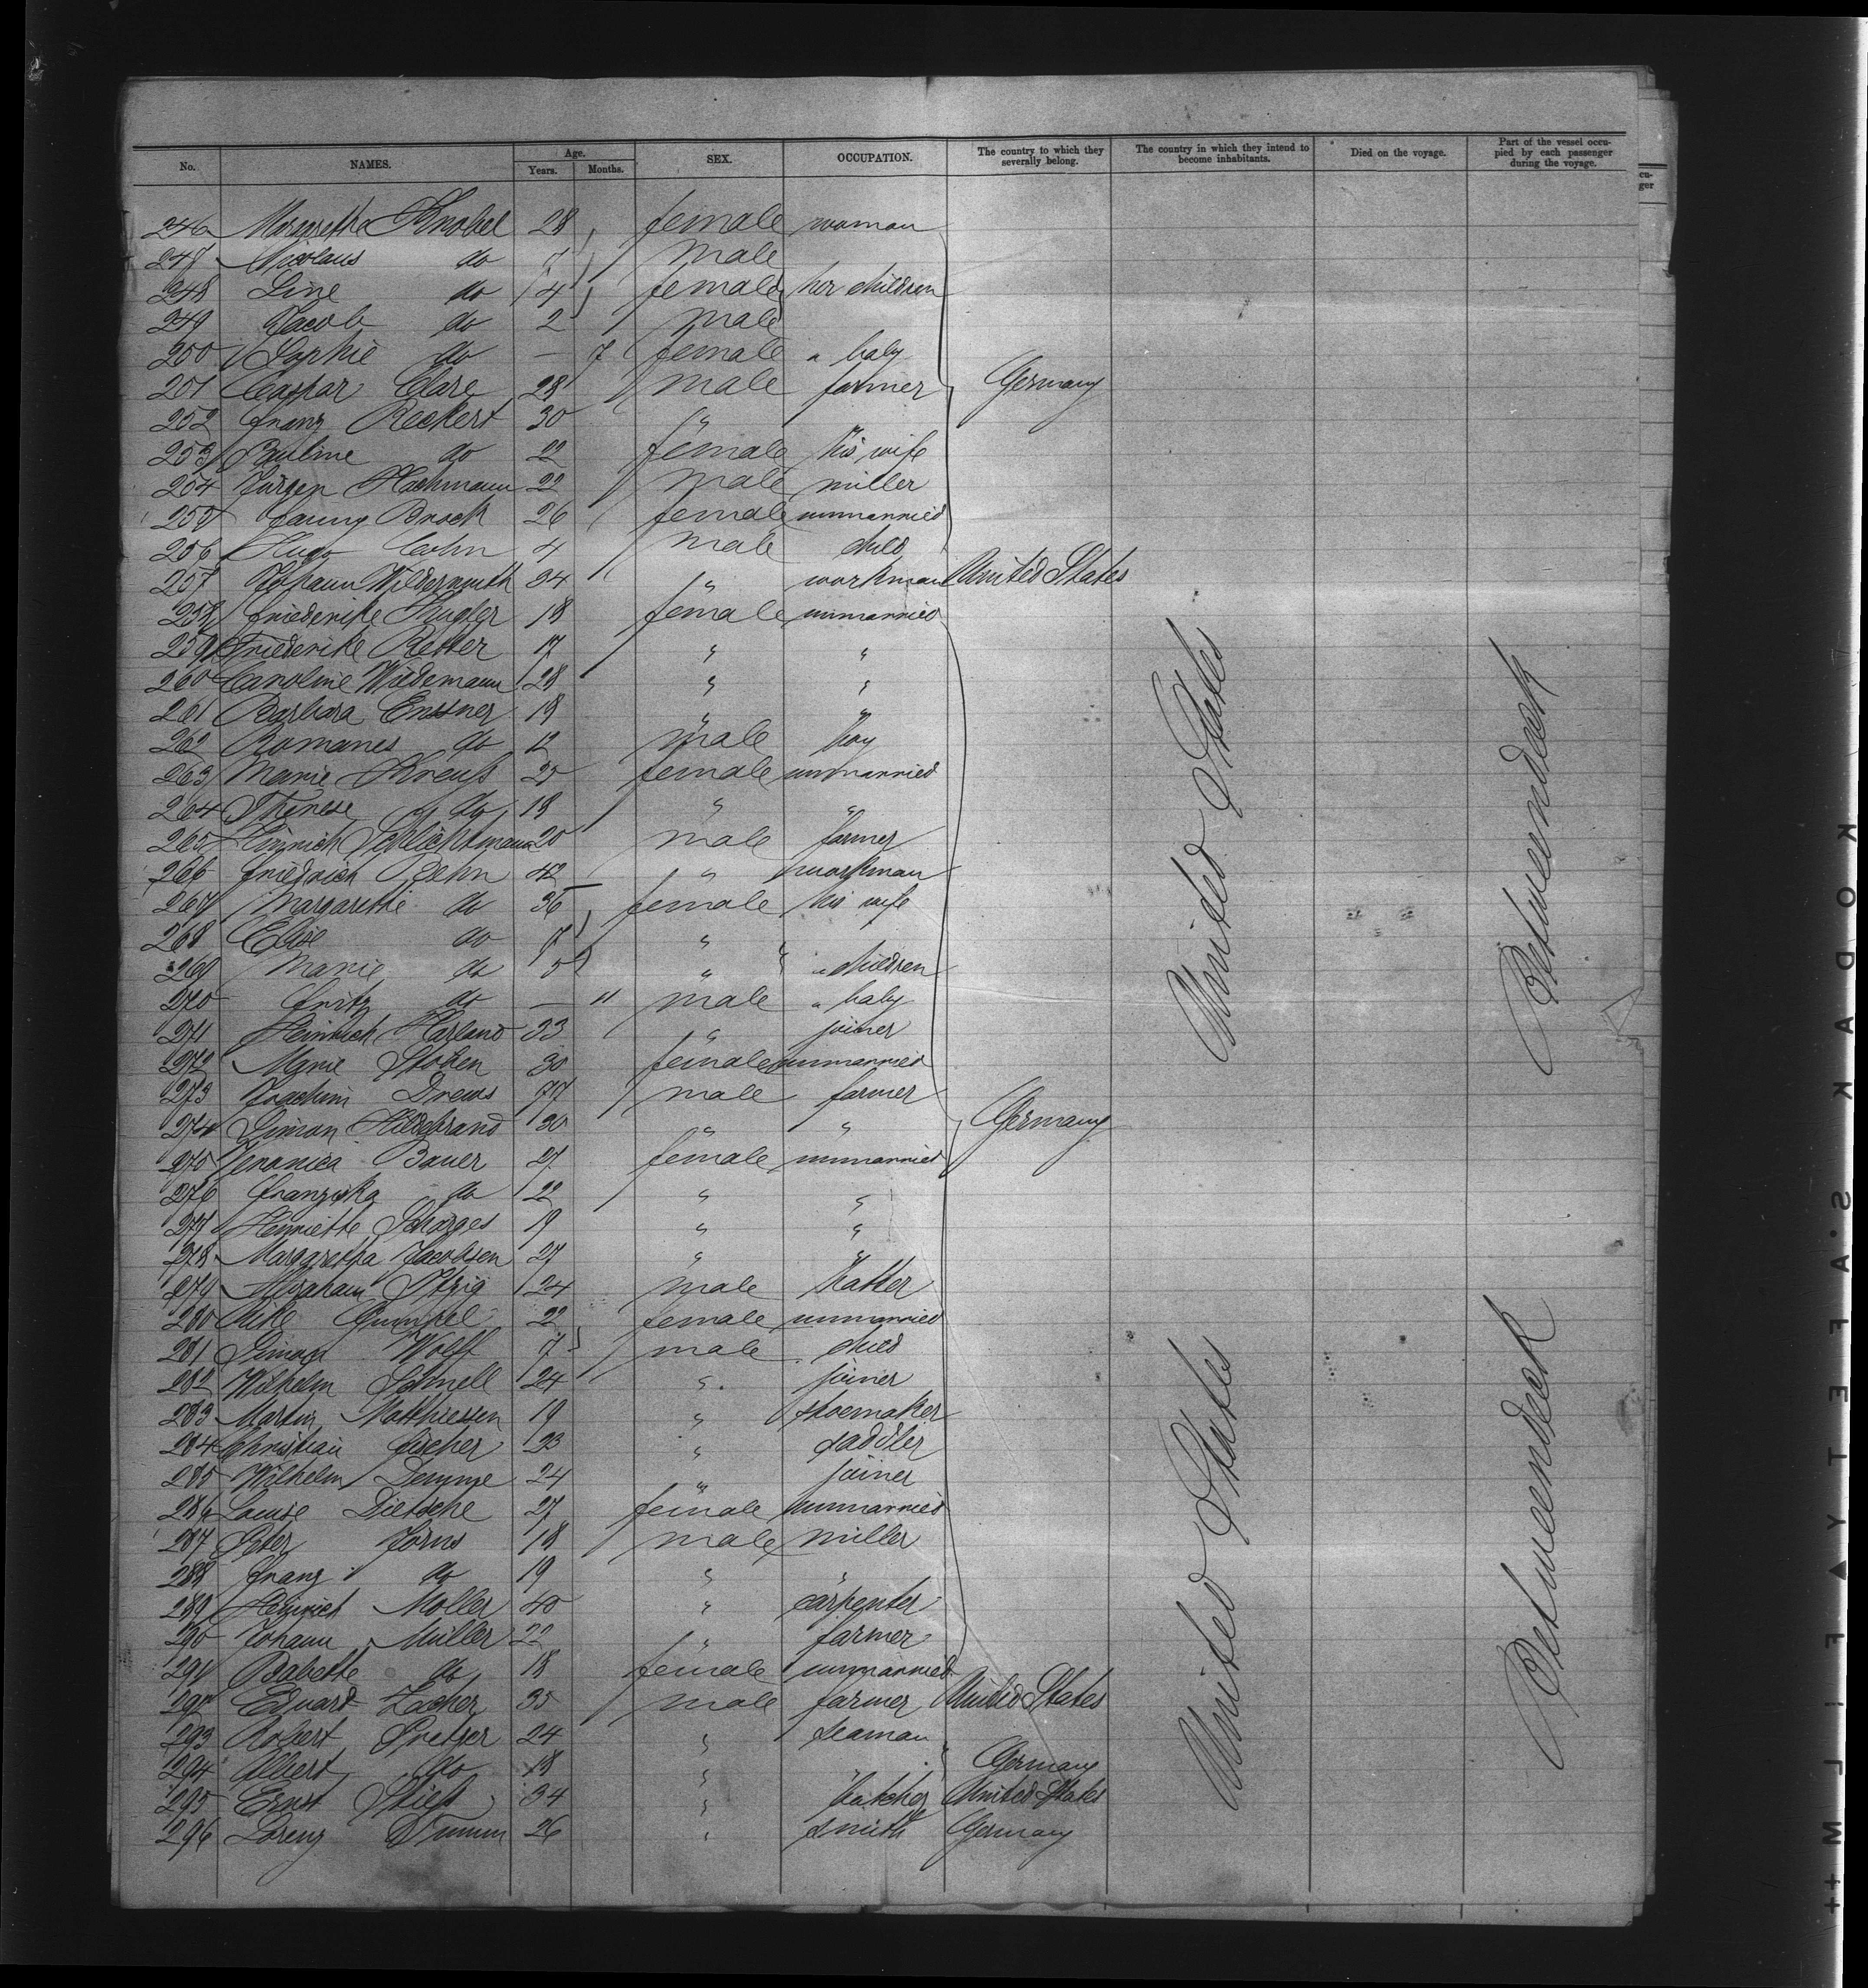 No. NAMES. Age. Years. Months. SEX. OCCUPATION. The country to which they severally belong. The country in which they intend to become inhabitants. Died on the voyage. Part of the vessel occupied by each passenger during the voyage.
246 Margaretha Knobel 28 female woman
247 Nicolaus do 7 male
248 Line do 4 female her children
249 Jacob do 2 male
250 Sophie do — 7 female " baby
251 Caspar Clare 28 male farmer Germany
252 Franz Reckert 30 " "
253 Pauline do 22 female his wife
254 Jürgen Hachmann 22 male miller
255 Fanny Brock 26 female unmarried
256 Hugo Cohn 4 male child
257 Johann Wildermuth 34 " workman United States
258 Friederike Kugler 18 female unmarried
259 Friederike Retter 17 " "
260 Caroline Wiedemann 28 " "
261 Barbara Enssner 18 " "
262 Romanes do 12 male boy
263 Marie Kreuß 25 female unmarried
264 Therese do 18 " "
265 Hinrich Schlichtmann 20 male farmer
266 Friedrich Behn 42 " workman
267 Margarethe do 36 female his wife
268 Elise do 7 "
269 Marie do 5 " " children
270 Fritz do — 11 male " baby
271 Heinrich Harland 33 " joiner
272 Marie Stoben 30 female unmarried
273 Joachim Drews 77 male farmer
274 Simon Hildebrand 30 " " Germany
275 Veronica Bauer 27 female unmarried
276 Franziska do 22 " "
277 Henriette 19 " "
278 Margaretha Jacobsen 27 " "
279 Abraham Itzig 24 male hatter
280 Rike Gumpel 22 female unmarried
281 Simon Wolff 7 male child
282 Wilhelm Schnell 24 " joiner
283 Martin Matthiessen 19 " shoemaker
284 Christian Fischer 23 " saddler
285 Wilhelm 24 " joiner
286 Louise Dietsche 27 female unmarried
287 Peter Jörns 18 male miller
288 Franz do 19 " "
289 Heinrich Moller 40 " carpenter
290 Johann Müller 22 " farmer
291 Babette do 18 female unmarried
292 Eduard Zacher 35 male farmer United States
293 Robert 24 " seaman "
294 Albert do 18 " " Germany
295 Ernst Stieß 34 " butcher United States
296 Lorenz 26 " smith Germany
United States
Betweendeck
United States
Betweendeck
KODAK
S.A.F.E.T.Y
F I L M